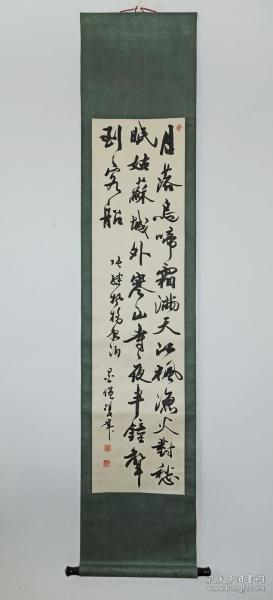 月落烏啼霜滿天江楓漁火對愁
眠姑蘇城外寒山寺夜半鐘聲
到客船
張継楓橋夜泊
孔夫子旧书网